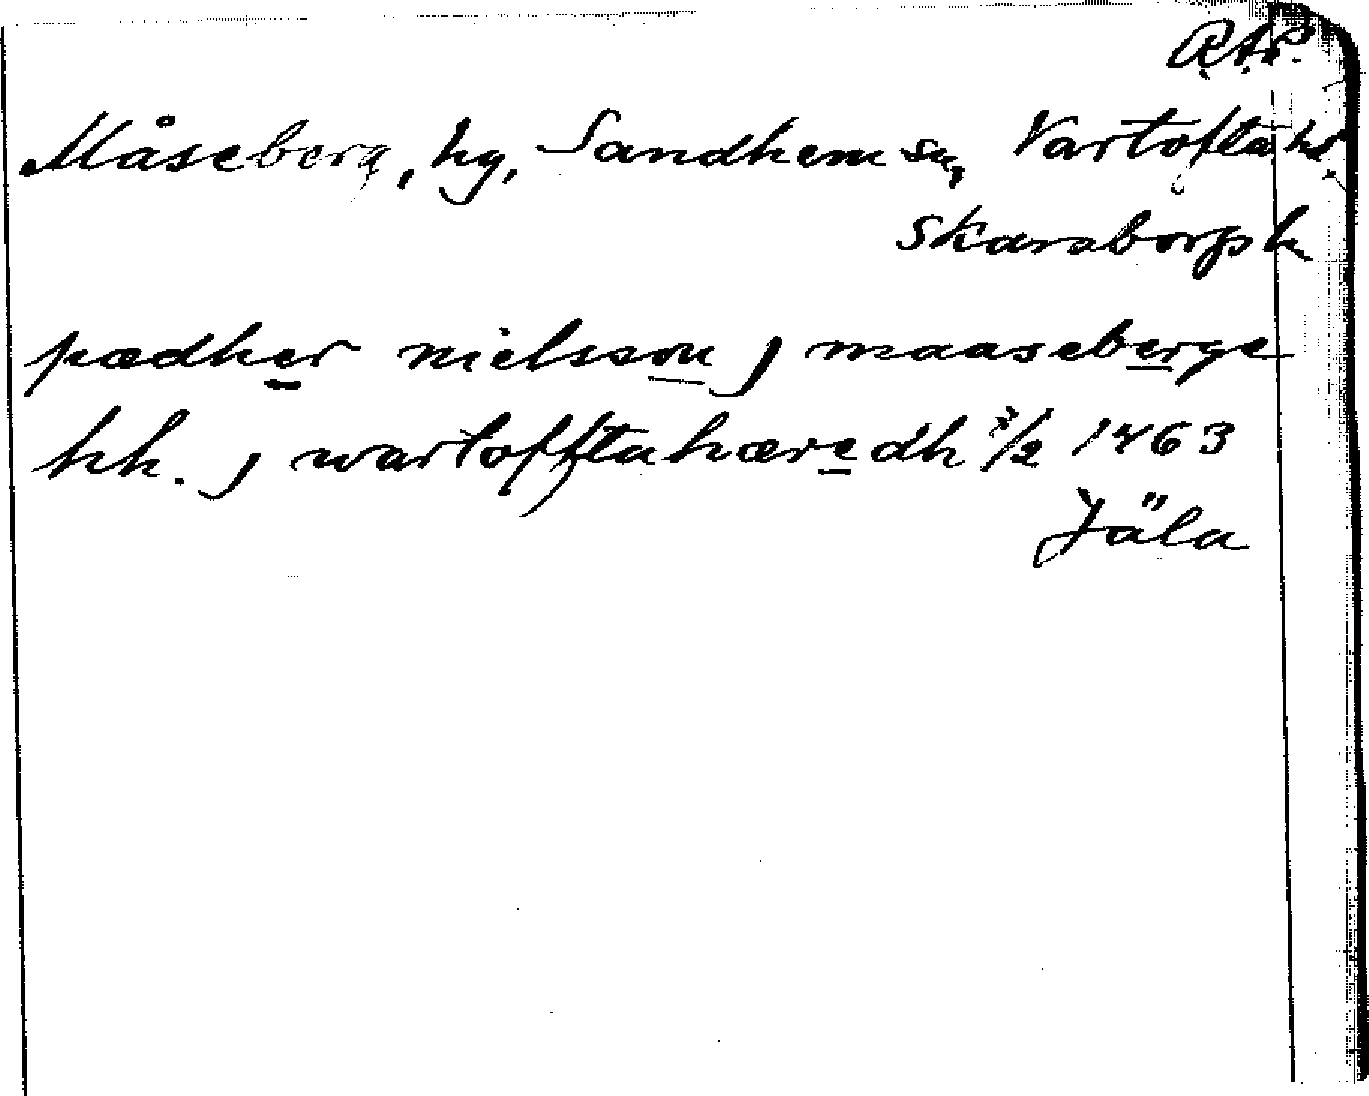 R.A.P.
Måseberg, hg, Sandhem sn, Vartofta hd
Skaraborgs l.
pædher nielsson j maaseberge
hh. j wartofftahæredh /2 1463
Jäla